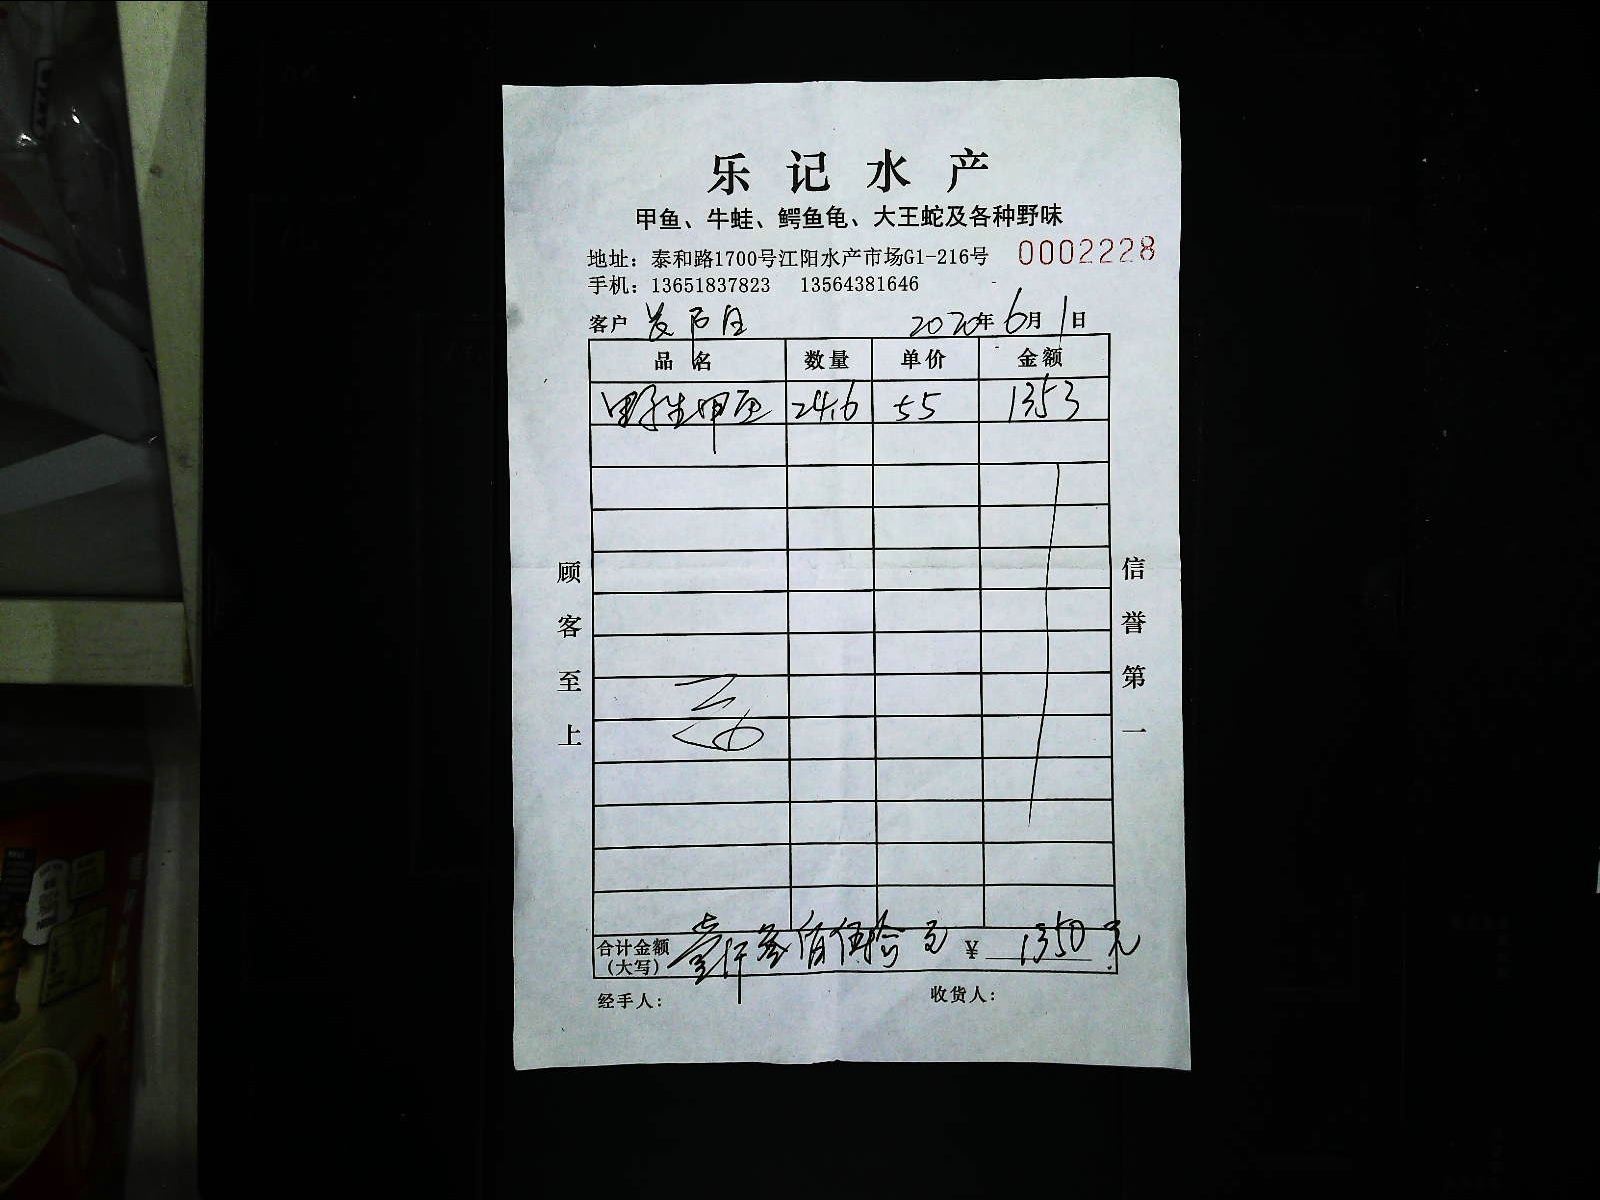 乐记水产
甲鱼、牛蛙、鳄鱼龟、大王蛇及各种野味
地址：泰和路1700号江阳水产市场G1-216号 0002228
手机：13651837823 13564381646
客户 2020年6月1日
品名 数量 单价 金额
野生甲鱼 24.6 55 1353
顾客至上
信誉第一
合计金额(大写) 壹仟叁佰伍拾元 ¥ 1350元
经手人： 收货人：